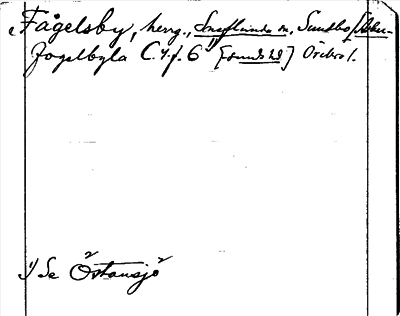 Fågelsby, herrg., Snavlunda sn, Sundbo/Askers
Fogelbyla C. 4. f. 6 1) [sunds hd] Örebro l.
1) Se Östansjö